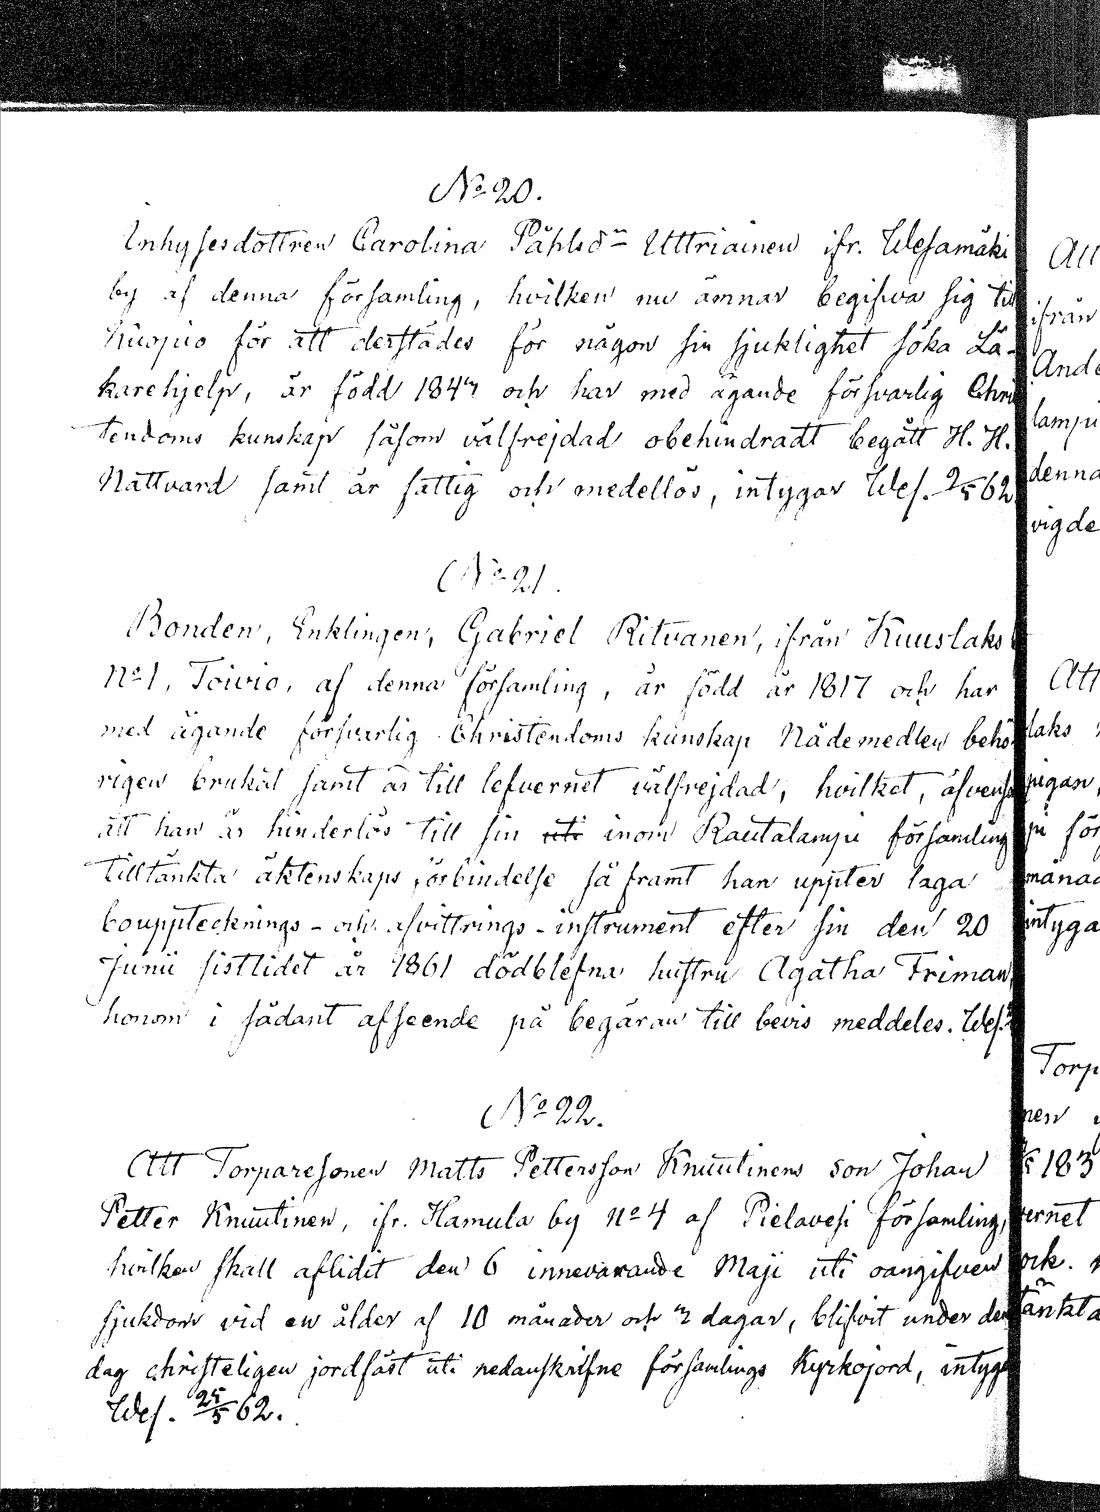 No 20.
Inhysesdottren Carolina Påhlsdr Uttriainen ifr. Wesamäki
by af denna församling, hvilken nu ämnar begifva sig till
Kuopio för att derstädes för någon sin sjuklighet söka Lä-
karehjelp, är född 1847 och har med ägande försvarlig Chri
tendoms kunskap såsom välfrejdad obehindradt begått H. H.
Nattvard samt är fattig och medellös, intygar Wes. 2/5 62
No 21.
Bonden, Enklingen, Gabriel Ritvanen, ifrån Kuuslaks
No 1, Toivio, af denna församling, är född år 1817 och har
med ägande försvarlig Christendoms kunskap Nådemedlen behö
rigen brukat samt är till lefvernet välfrejdad, hvilket, äfvenso
att han är hinderlös till sin uti inom Rautalampi församling
tilltänkta äktenskaps förbindelse så framt han uppter laga
bouppteknings - och afvittrings - instrument efter sin den 20
Junii sistlidet år 1861 dödblefna hustru Agatha Friman,
honom i sådant afseende på begäran till bevis meddeles. Wes.
No 22.
Att Torparesonen Matts Pettersson Knuutinens son Johan
Petter Knuutinen, ifr. Hamula by No 4 af Pielavesi församling,
hvilken skall aflidit den 6 innevarande Maji uti oangifven
sjukdom vid en ålder af 10 månader och 2 dagar, blifvit under den
dag christeligen jordfäst uti nedanskrifne församlings Kyrkojord, intyg
Wes. 25/5 62.
Att
ifrån
Ande
lampi
denna
vigde
Att
laks
pigan,
pi för
månad
intyga
Torp
nen
183
vernet
ock.
tänkta